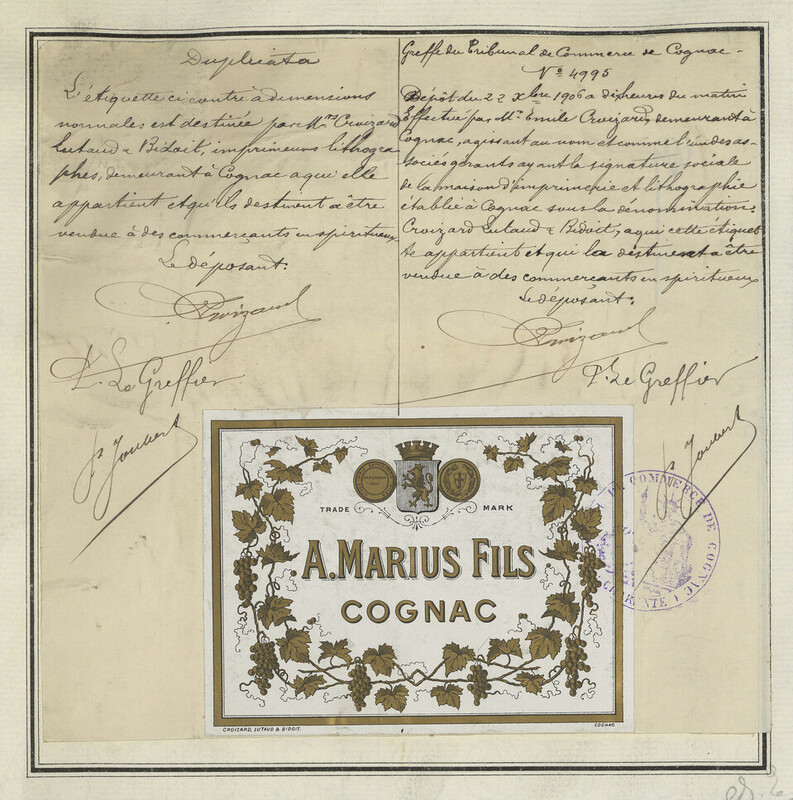 Duplicata
L'étiquette ci contre à dimensions
normales est destinée par Mrs Croizard
Lutaud & Bidoit, imprimeurs lithogra
phes, demeurant à Cognac a qui elle
appartient et qu'ils destinent a être
vendue à des commerçants en spiritueux
Le déposant:
Croizard
P. Le Greffier
Joubert
Greffe du Tribunal de Commerce de Cognac -
No 4995
Dépôt du 22 Xbre 1906 a dix heures du matin
Effectué par Mr Emile Croizard, demeurant à
Cognac, agissant au nom et comme l'un des as-
sociés gérants ayant la signature sociale
de la maison d'imprimerie et lithographie
établie à Cognac sous la dénomination:
Croizard Lutaud & Bidoit, a qui cette étiquet
te appartient et qui la destinent a être
vendue à des commerçants en spiritueux
Le déposant:
Croizard
P. Le Greffier
Joubert
TRADE MARK
A. MARIUS FILS
COGNAC
CROIZARD, LUTAUD & BIDOIT.
COGNAC
DE COMMERCE DE COGNAC
CHARENTE